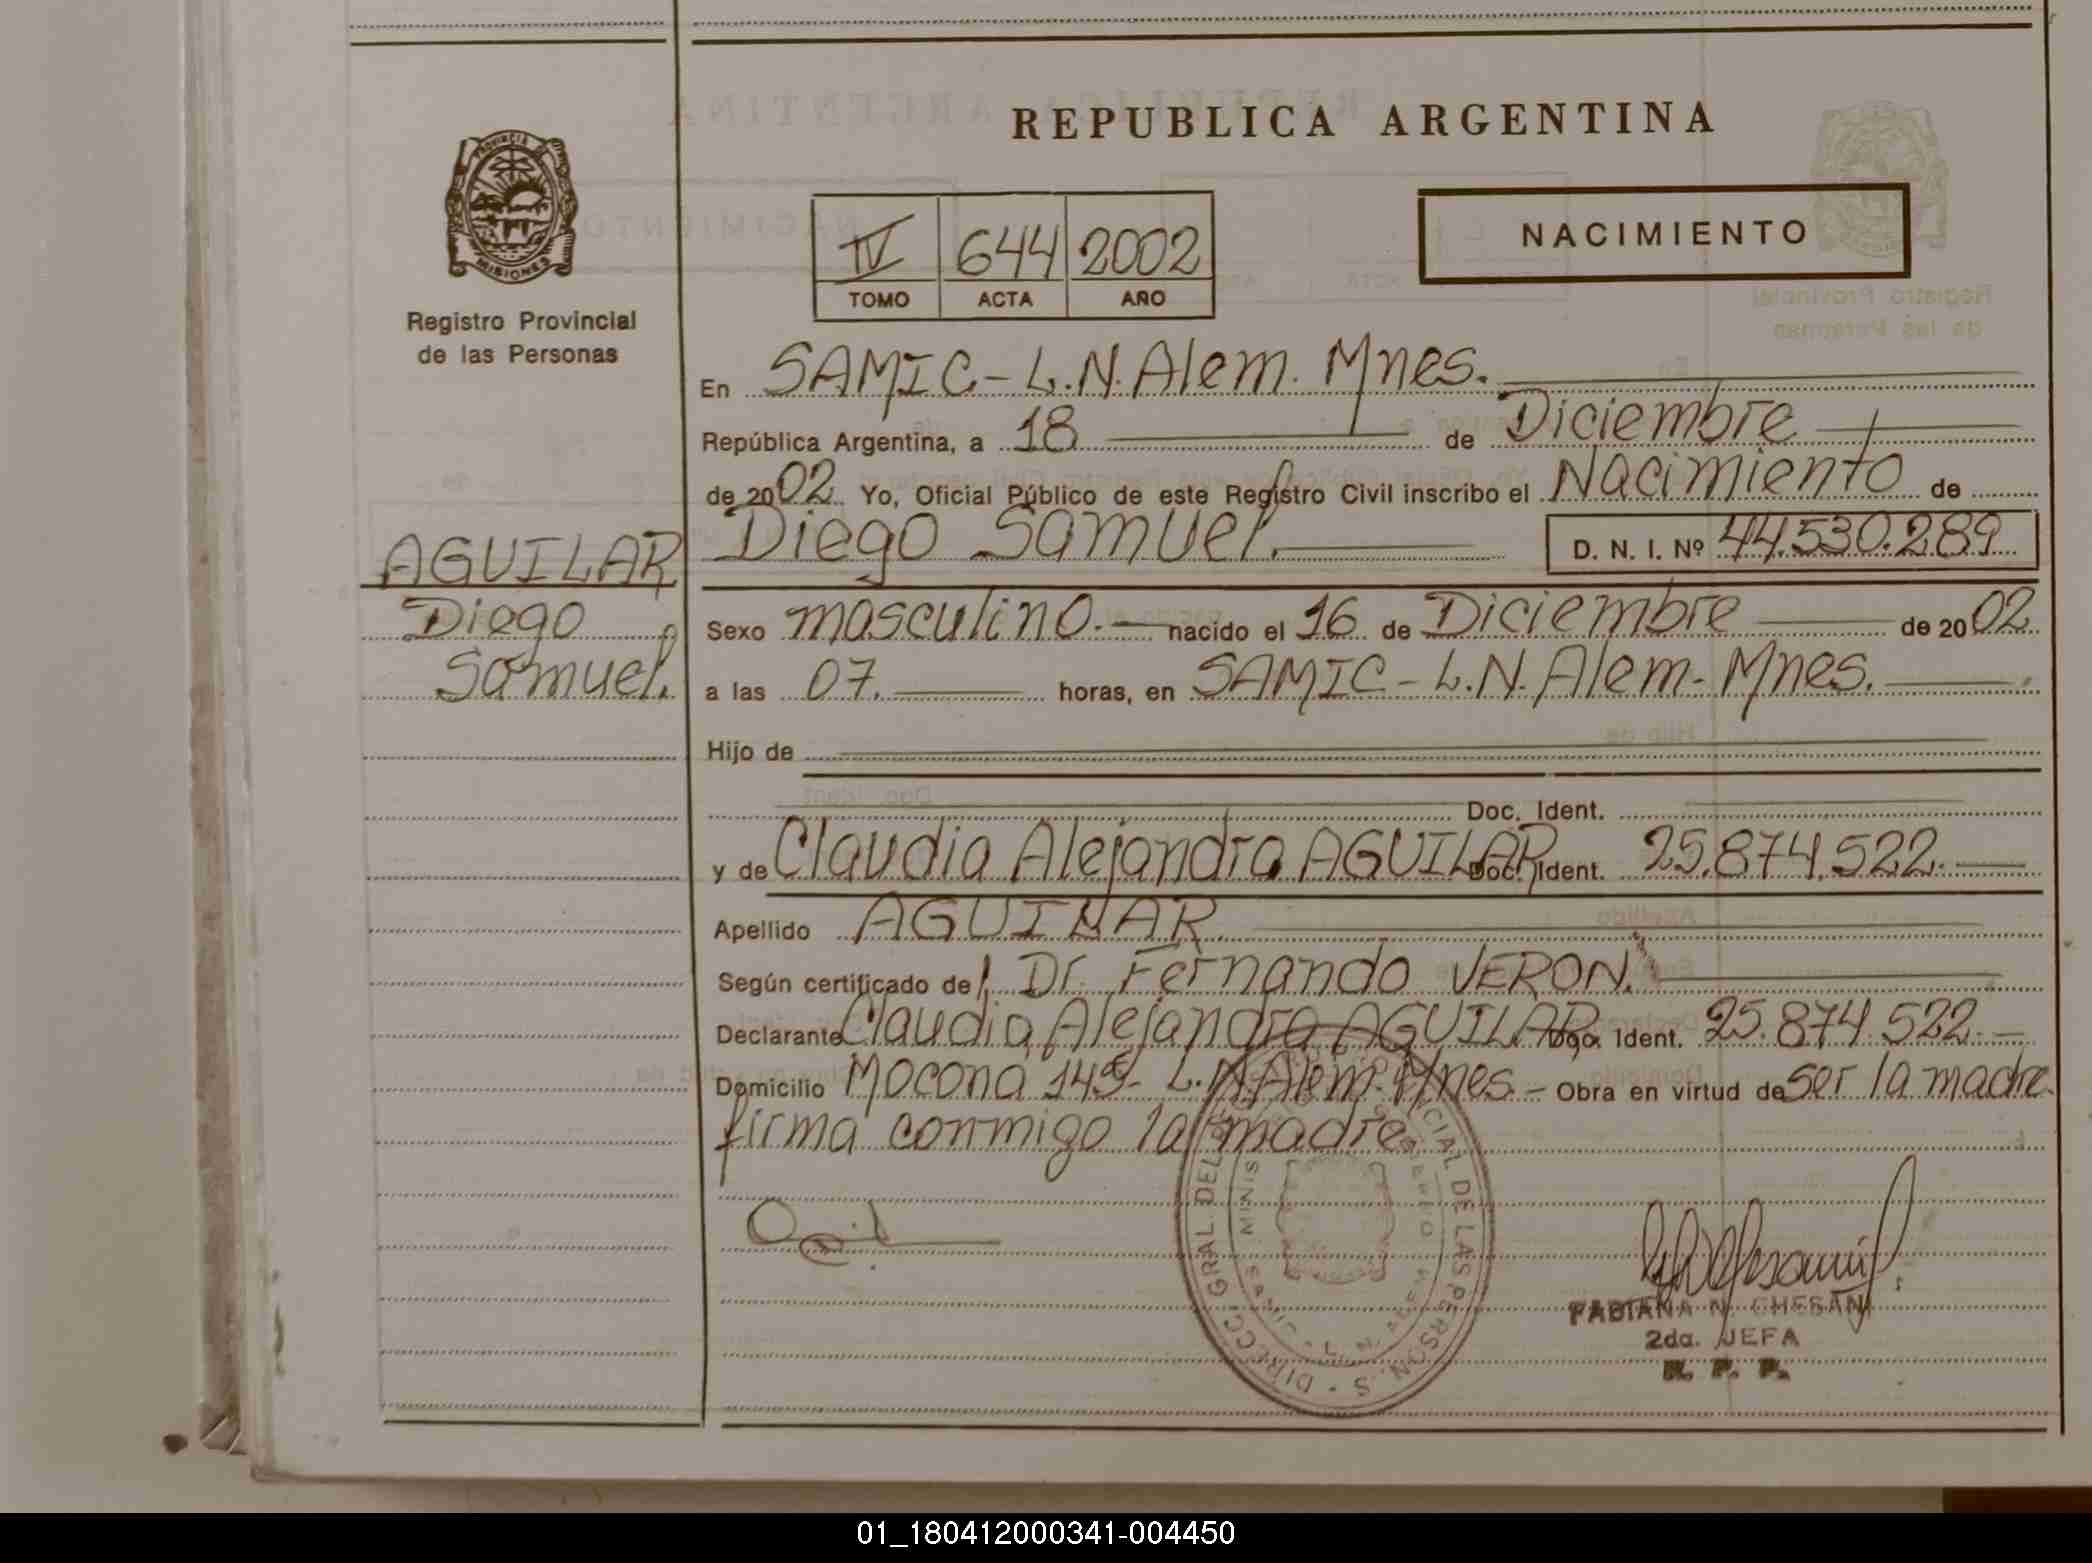 REPUBLICA ARGENTINA
PROVINCIA DE
MISIONES
Registro Provincial
de las Personas
IV 644 2002
TOMO ACTA AÑO
NACIMIENTO
En SAMIC - L.N. Alem. Mnes.
República Argentina, a 18 de Diciembre
de 2002 Yo, Oficial Público de este Registro Civil inscribo el Nacimiento de
AGUILAR
Diego
Samuel.
Diego Samuel. D. N. I. Nº 44.530.289
Sexo masculino. nacido el 16 de Diciembre de 2002
a las 07. horas, en SAMIC - L.N. Alem. Mnes.
Hijo de
Doc. Ident.
y de Claudia Alejandra AGUILAR Doc. Ident. 25.874.522.
Apellido AGUILAR
Según certificado de Dr. Fernando VERON.
Declarante Claudia Alejandra AGUILAR Doc. Ident. 25.874.522.
Domicilio Mocona 145 - L.N. Alem. Mnes. - Obra en virtud de ser la madre.
firma conmigo la madre
DIRECC. GRAL. DEL CIAL DE LAS PERSON. S
MINIS
SAMIC - L. N. ALEM
FABIANA N. CHESANI
2da. JEFA
R. P. P.
01_180412000341-004450